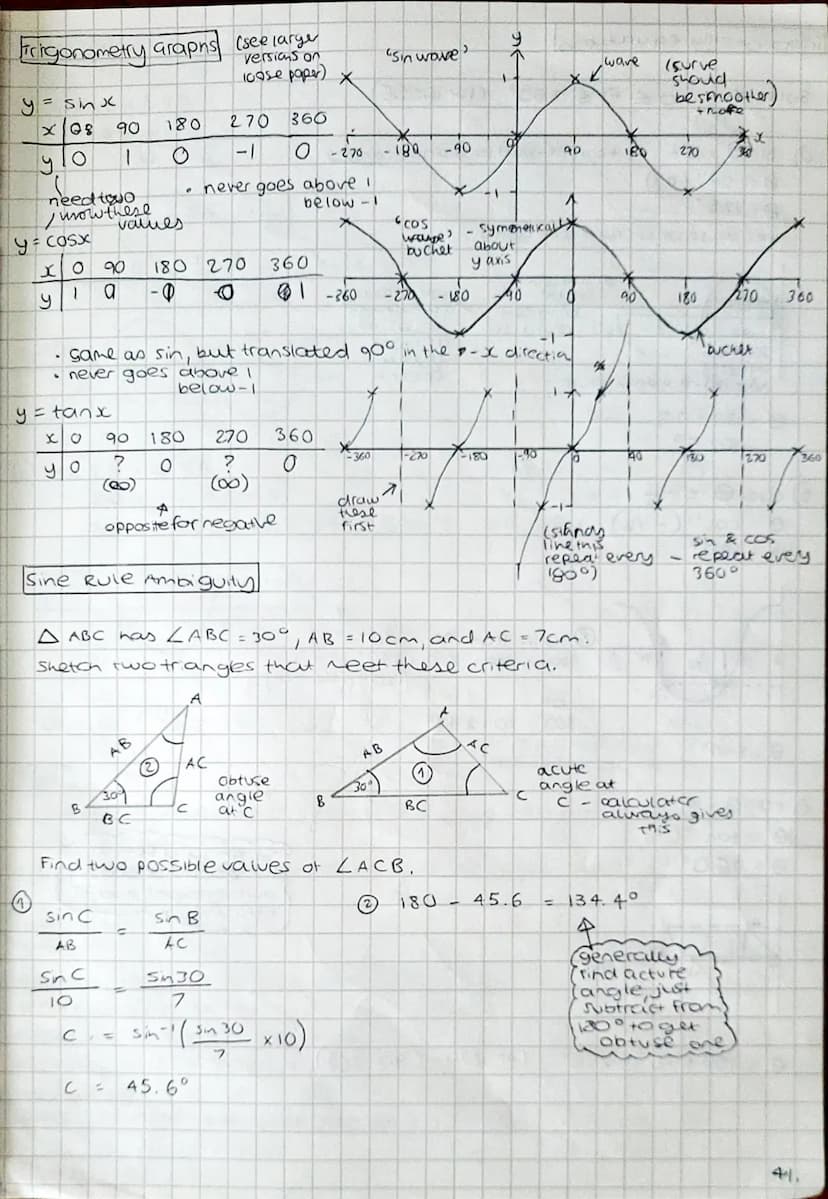 Trigonometry Graphs (see larger
versions on
loose paper)
y = sin x
x | 0 90 180 270 360
y | 0 1 0 -1 0
need to
know these
values
• never goes above 1
below -1
"sin wave"
y
wave
(curve
should
be smoother)
1
-270 -180 -90 0 90 180 270 360 x
-1
y = cos x
x | 0 90 180 270 360
y | 1 0 -1 0 1
"cos
bucket
- symmetrical
about
y axis
1
-360 -270 -180 -90 0 90 180 270 360
-1
bucket
• same as sin, but translated 90° in the -x direction
• never goes above 1
below -1
y = tan x
x | 0 90 180 270 360
y | 0 ? 0 ? 0
(∞) (∞)
opposite for negative
1
-360 -270 -180 -90 0 90 180 270 360
-1
draw
these
first
line this
repeat every
180°)
- sin & cos
repeat every
360°
Sine Rule Ambiguity
△ ABC has ∠ABC = 30°, AB = 10cm, and AC = 7cm.
Sketch two triangles that meet these criteria.
A
AB
②
AC
30°
B
BC
C
obtuse
angle
at C
A
AB
AC
①
30°
B
BC
C
acute
angle at
C - calculator
always gives
this
Find two possible values of ∠ACB.
①
sin C / AB = sin B / AC
sin C / 10 = sin 30 / 7
C = sin⁻¹ ( sin 30 / 7 × 10)
C = 45.6°
② 180 - 45.6 = 134.4°
generally
find acture
angle, just
subtract from
180° to get
obtuse one
41.